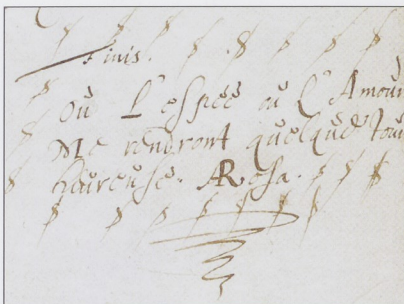 Finis.
Ou L'espée ou L'Amour
Me rendront quelque Jour
heureuse. ARosa.